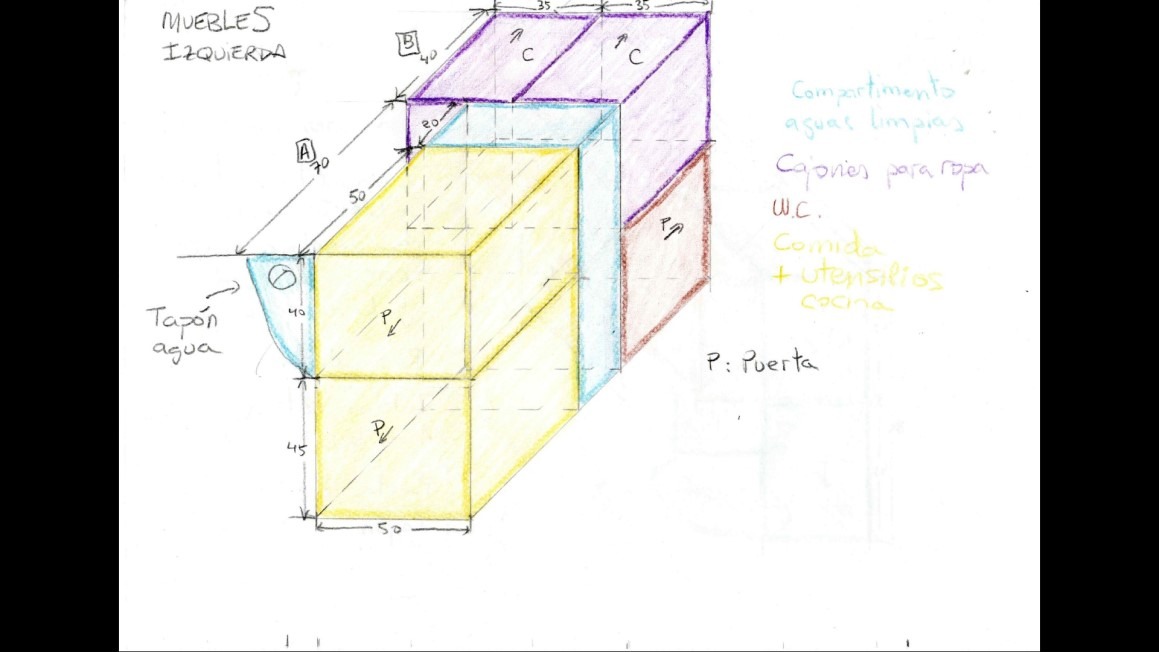 MUEBLES
IZQUIERDA
35
35
B
40
C
C
20
A
70
50
Compartimento
aguas limpias
Cajones para ropa
P
W.C.
Comida
+ utensilios
cocina
Tapón
agua
40
P
P: Puerta
P
45
50